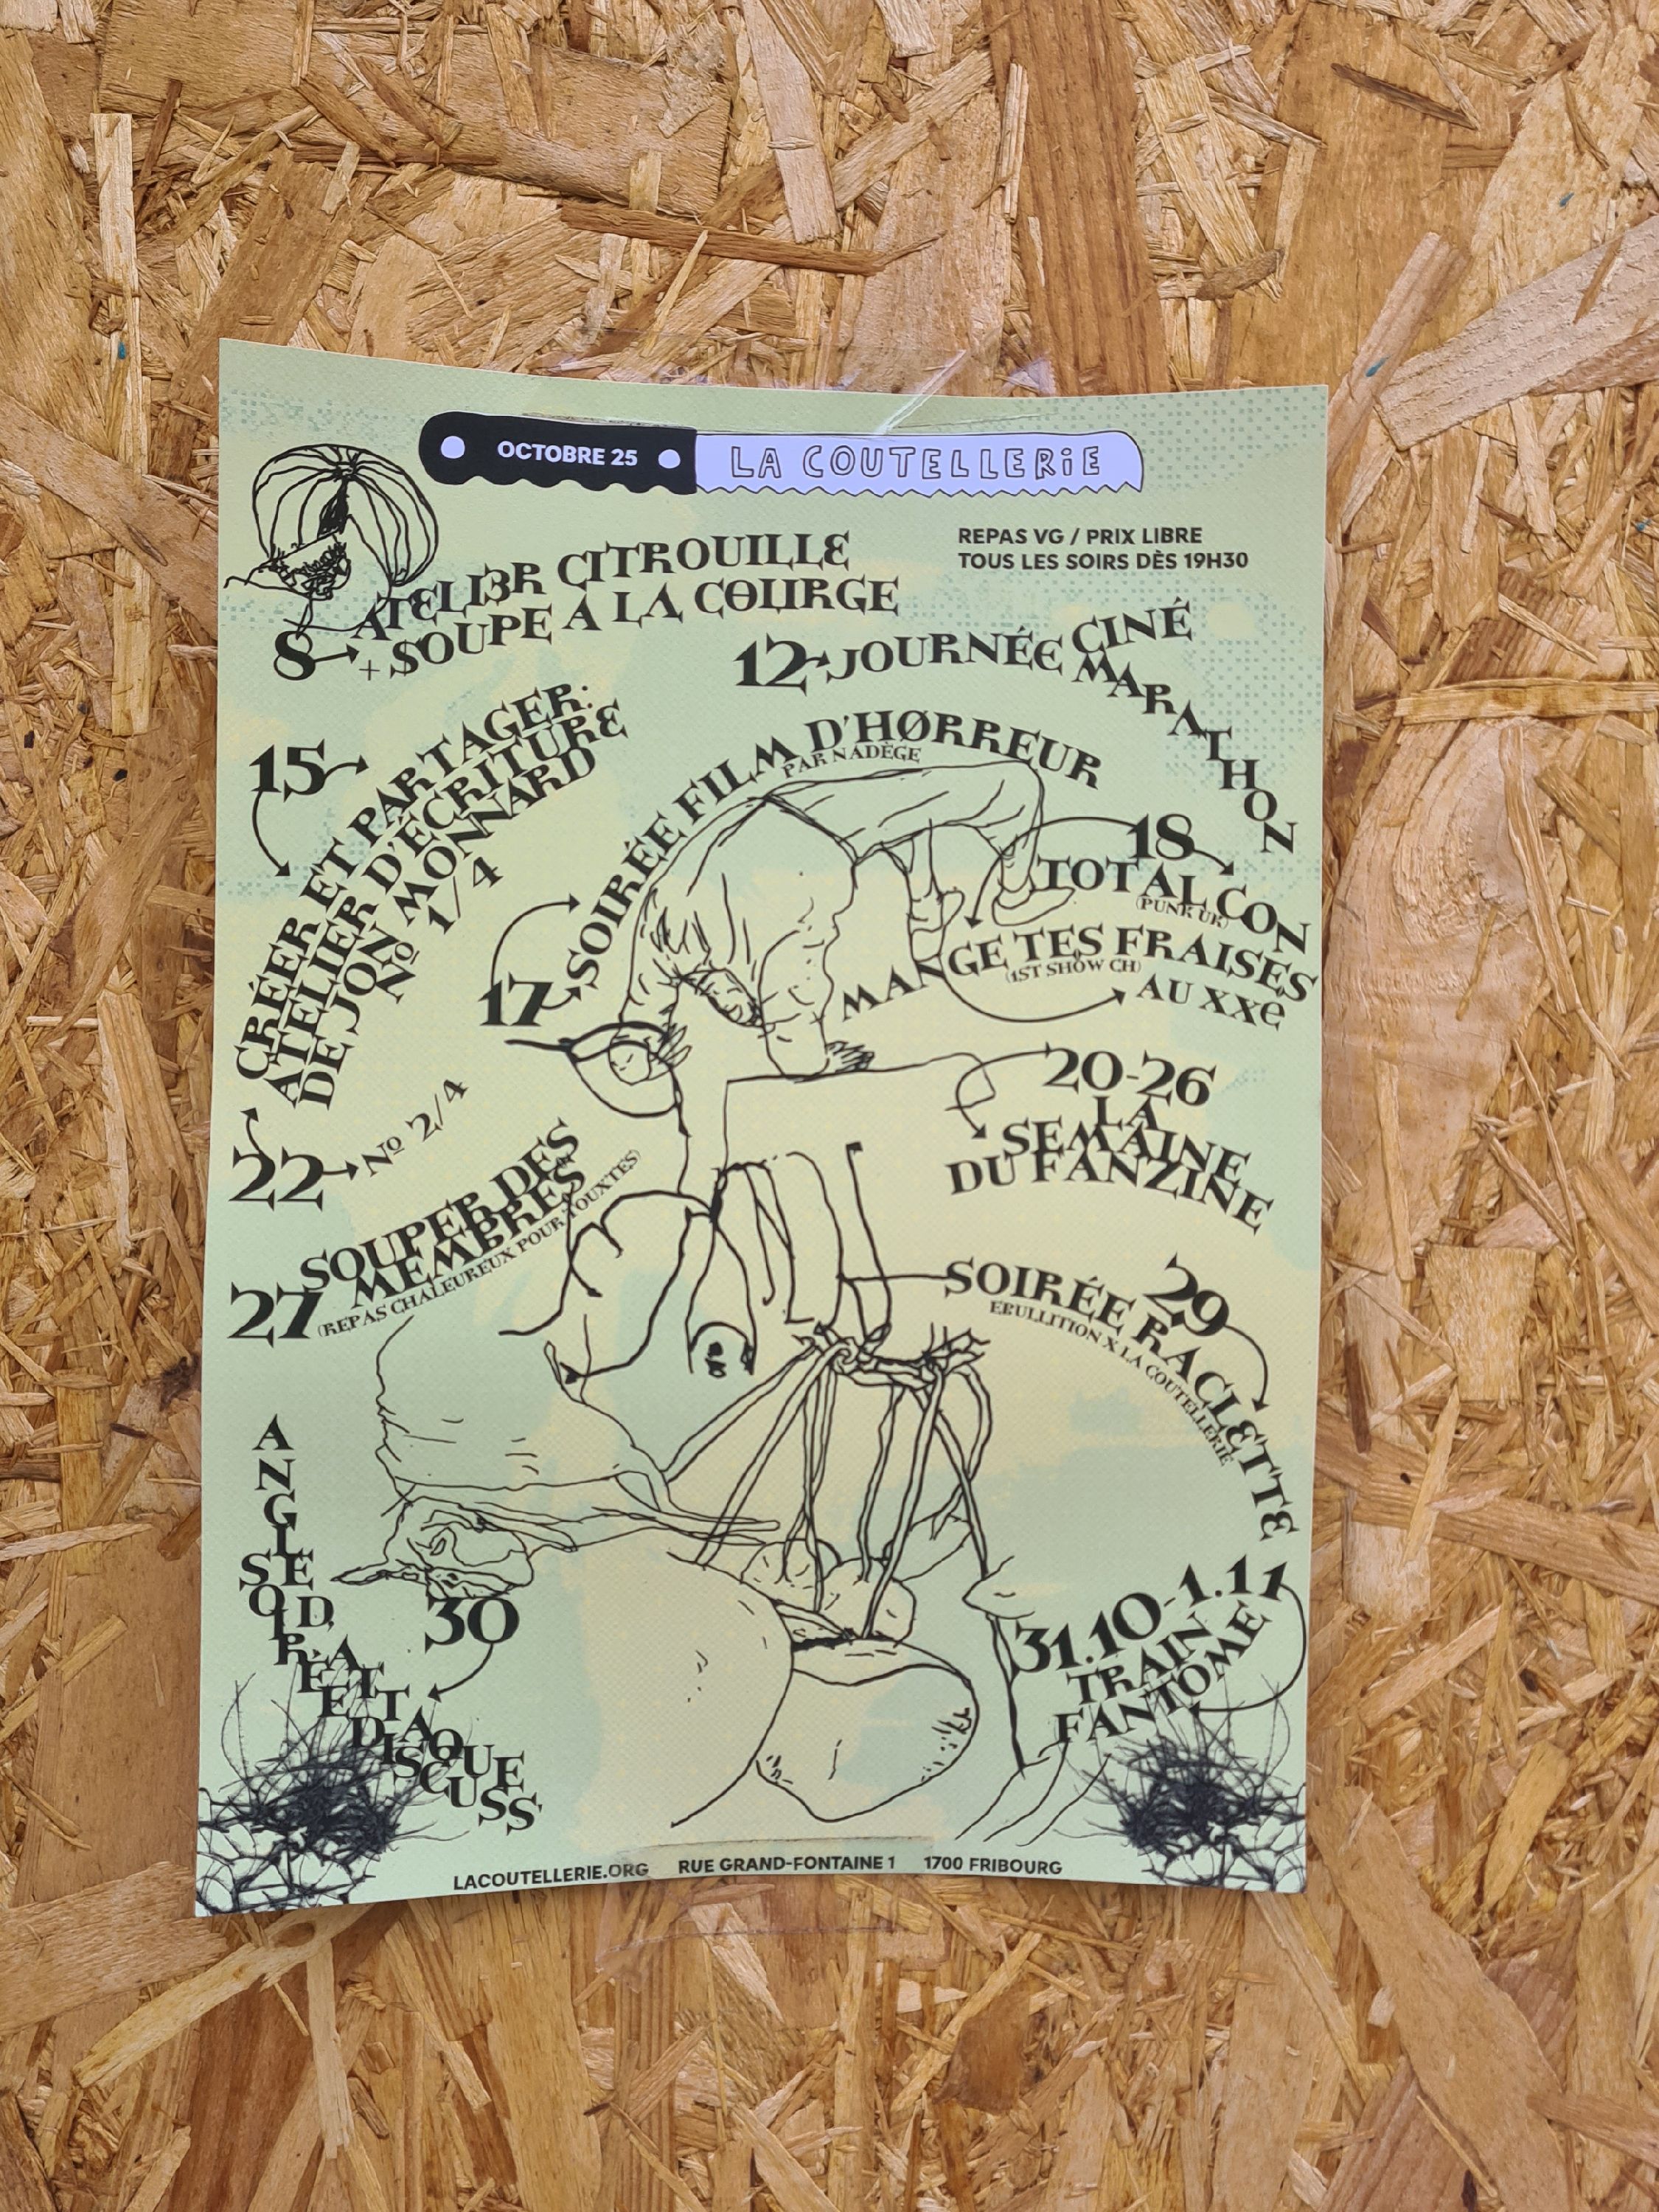 OCTOBRE 25
LA COUTELLERiE
REPAS VG / PRIX LIBRE
TOUS LES SOIRS DÈS 19H30
8
ATELIER CITROUILLE
+ SOUPE A LA COURGE
12 JOURNÉE CINÉ
MARATHON
15
CRÉER ET PARTAGER:
ATELIER D'ÉCRITURE
DE JON MONNARD
No 1/4
17 SOIRÉE FILM D'HØRREUR
PAR NADÈGE
18
TOTAL CON
(PUNK UK)
MANGE TES FRAISES
(1ST SHOW CH)
AU XXe
20-26
LA
SEMAINE
DU FANZINE
22 No 2/4
27 SOUPER DES
MEMBRES
(REPAS CHALEUREUX POUR TOUXTES)
29
SOIRÉE RACLETTE
EBULLITION X LA COUTELLERIE
30
ANGLE D'ATTAQUE
SOIRÉE DISCUSS
31.10-1.11
TRAIN
FANTOME
LACOUTELLERIE.ORG RUE GRAND-FONTAINE 1 1700 FRIBOURG